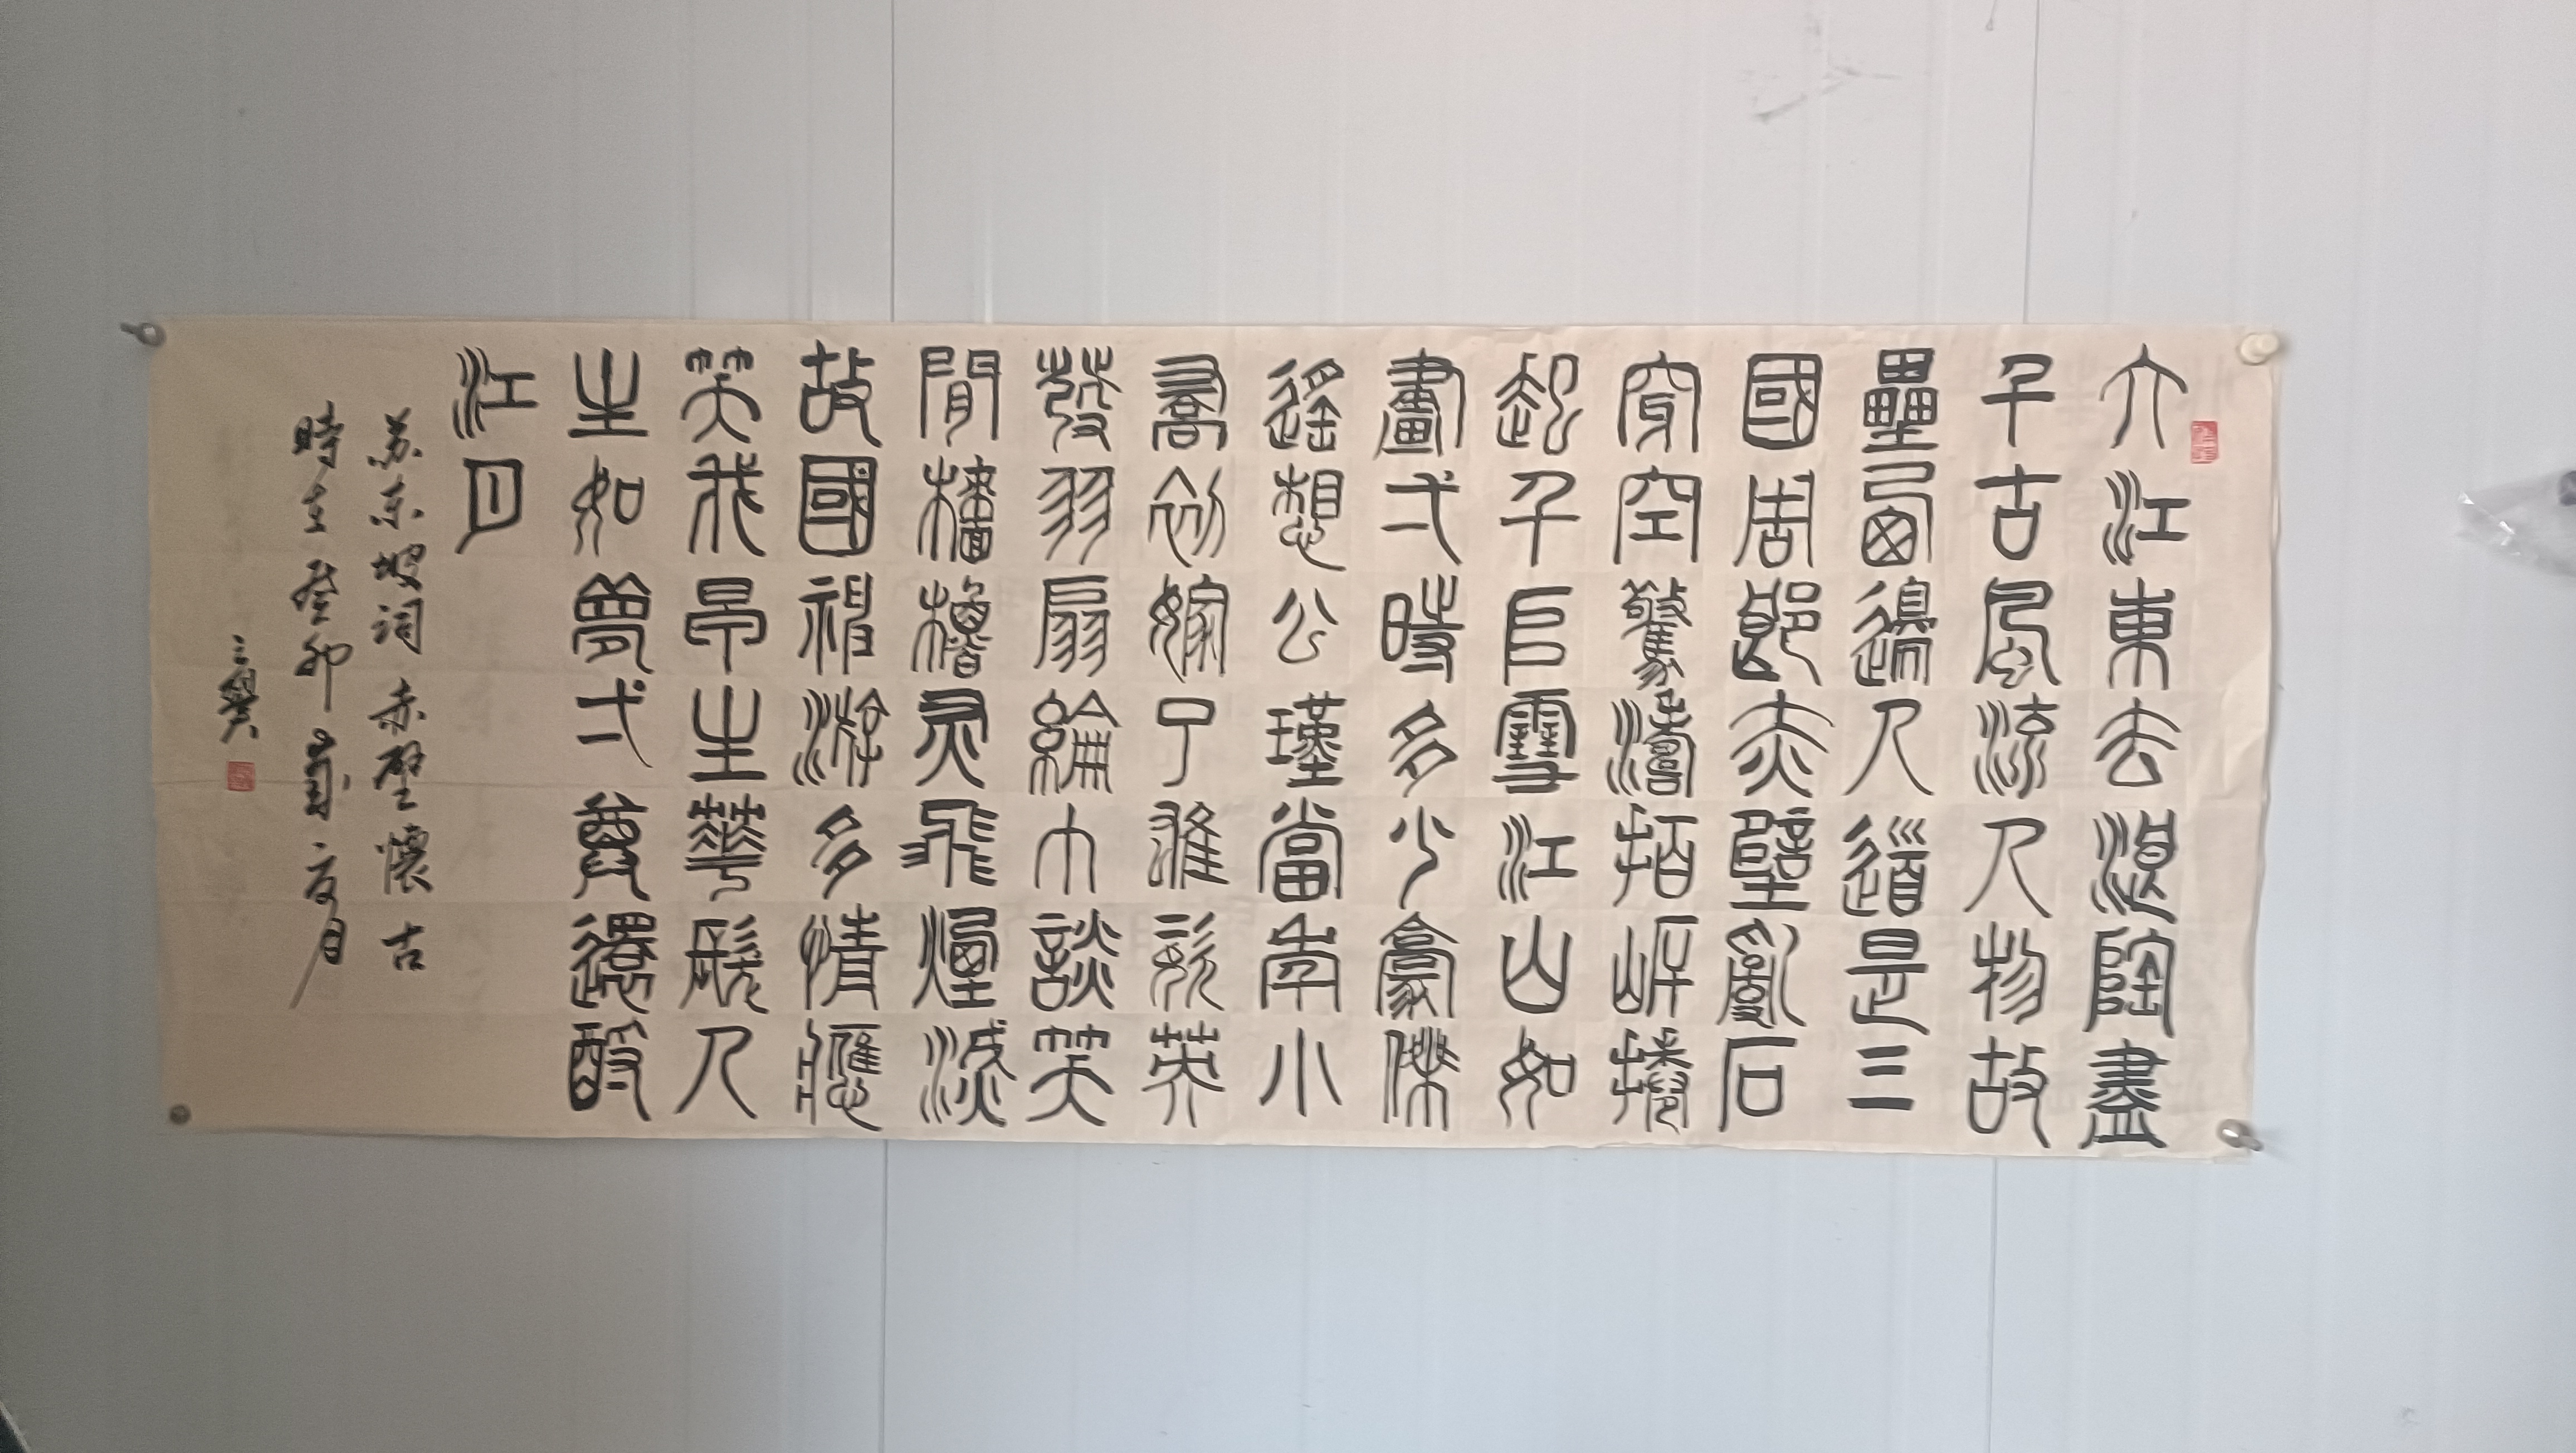 大江東去浪陶盡
千古風流人物故
壘西邊人道是三
國周郎赤壁亂石
穿空驚濤拍岸捲
起千堆雪江山如
畫弌時多少豪傑
遙想公瑾當年小
喬初嫁了雄姿英
發羽扇綸巾談笑
間檣櫓灰飛煙滅
故國神游多情應
笑我早生華髮人
生如夢弌尊還酹
江月
苏东坡词赤壁懷古
時在癸卯夏月